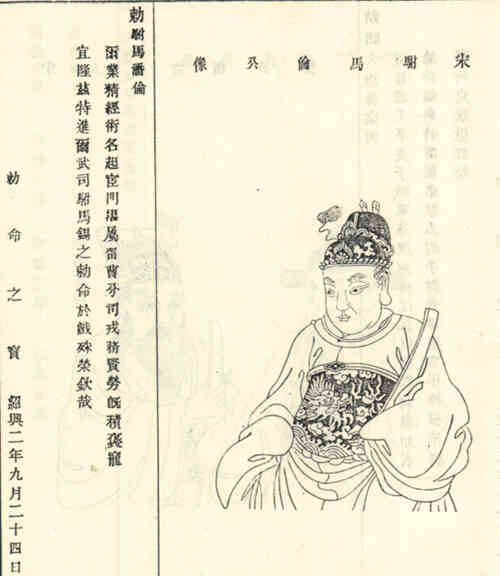 宋駙馬倫公像
勅駙馬潘倫
爾業精經術名起宦門曹分司戎務賢勞旣積褒寵
宜隆茲特進爾武司駙馬錫之勅命於戲殊榮欽哉
勅命之寶 紹興二年九月二十四日